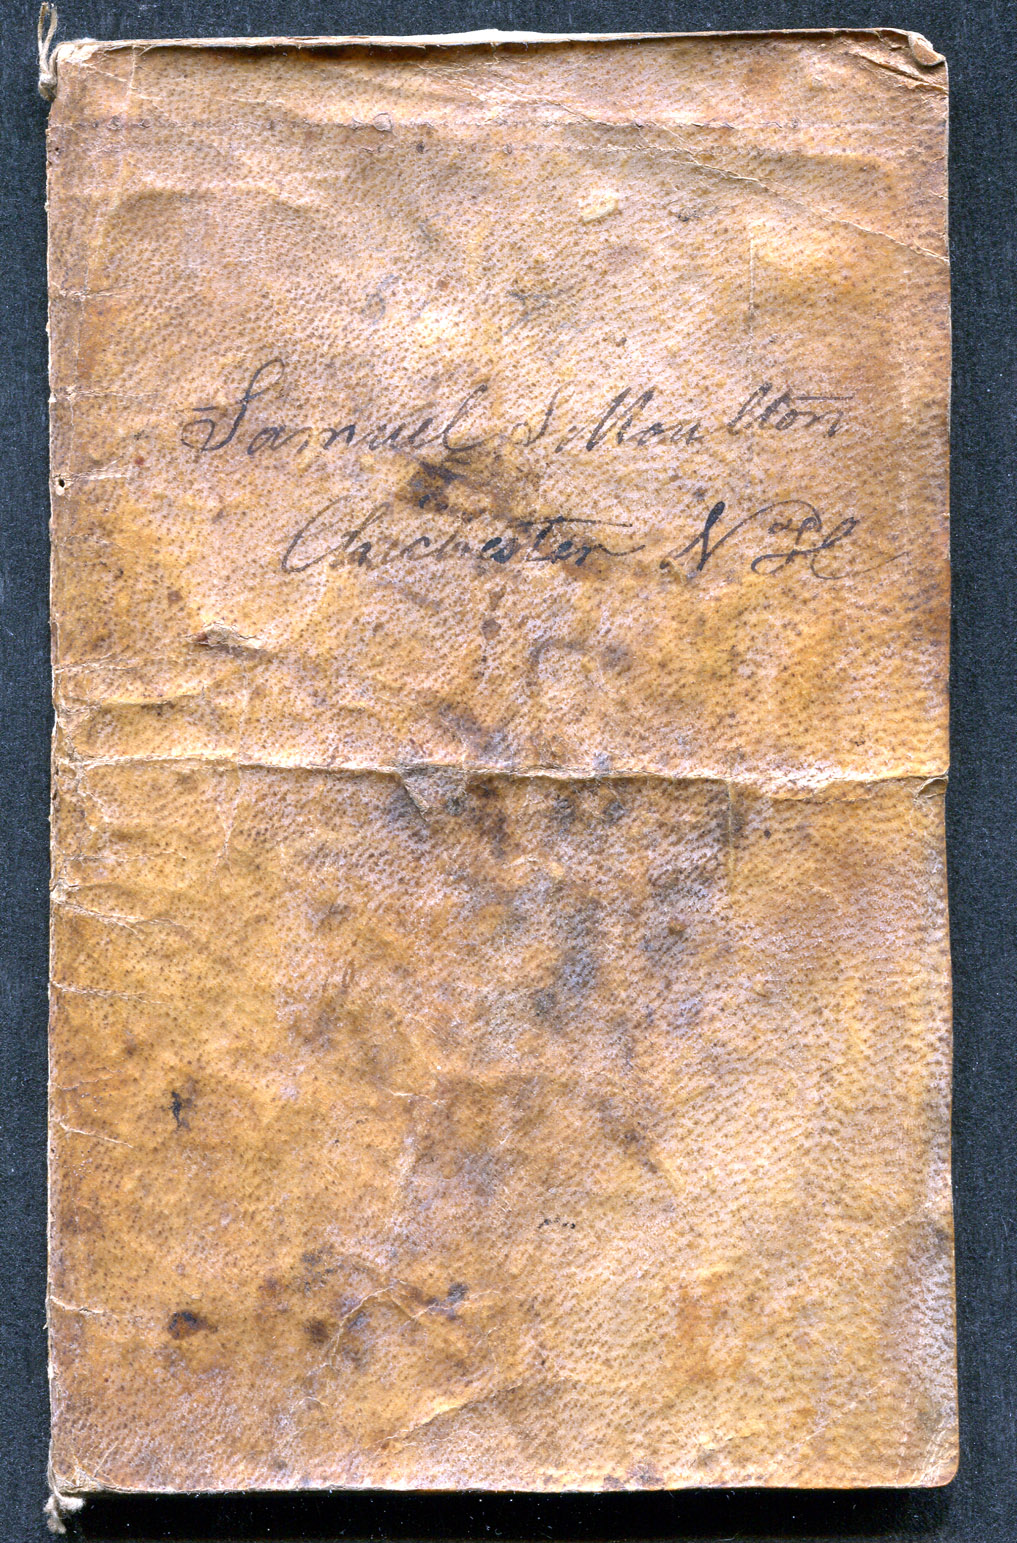 Samuel S. Moulton
Chichester N H